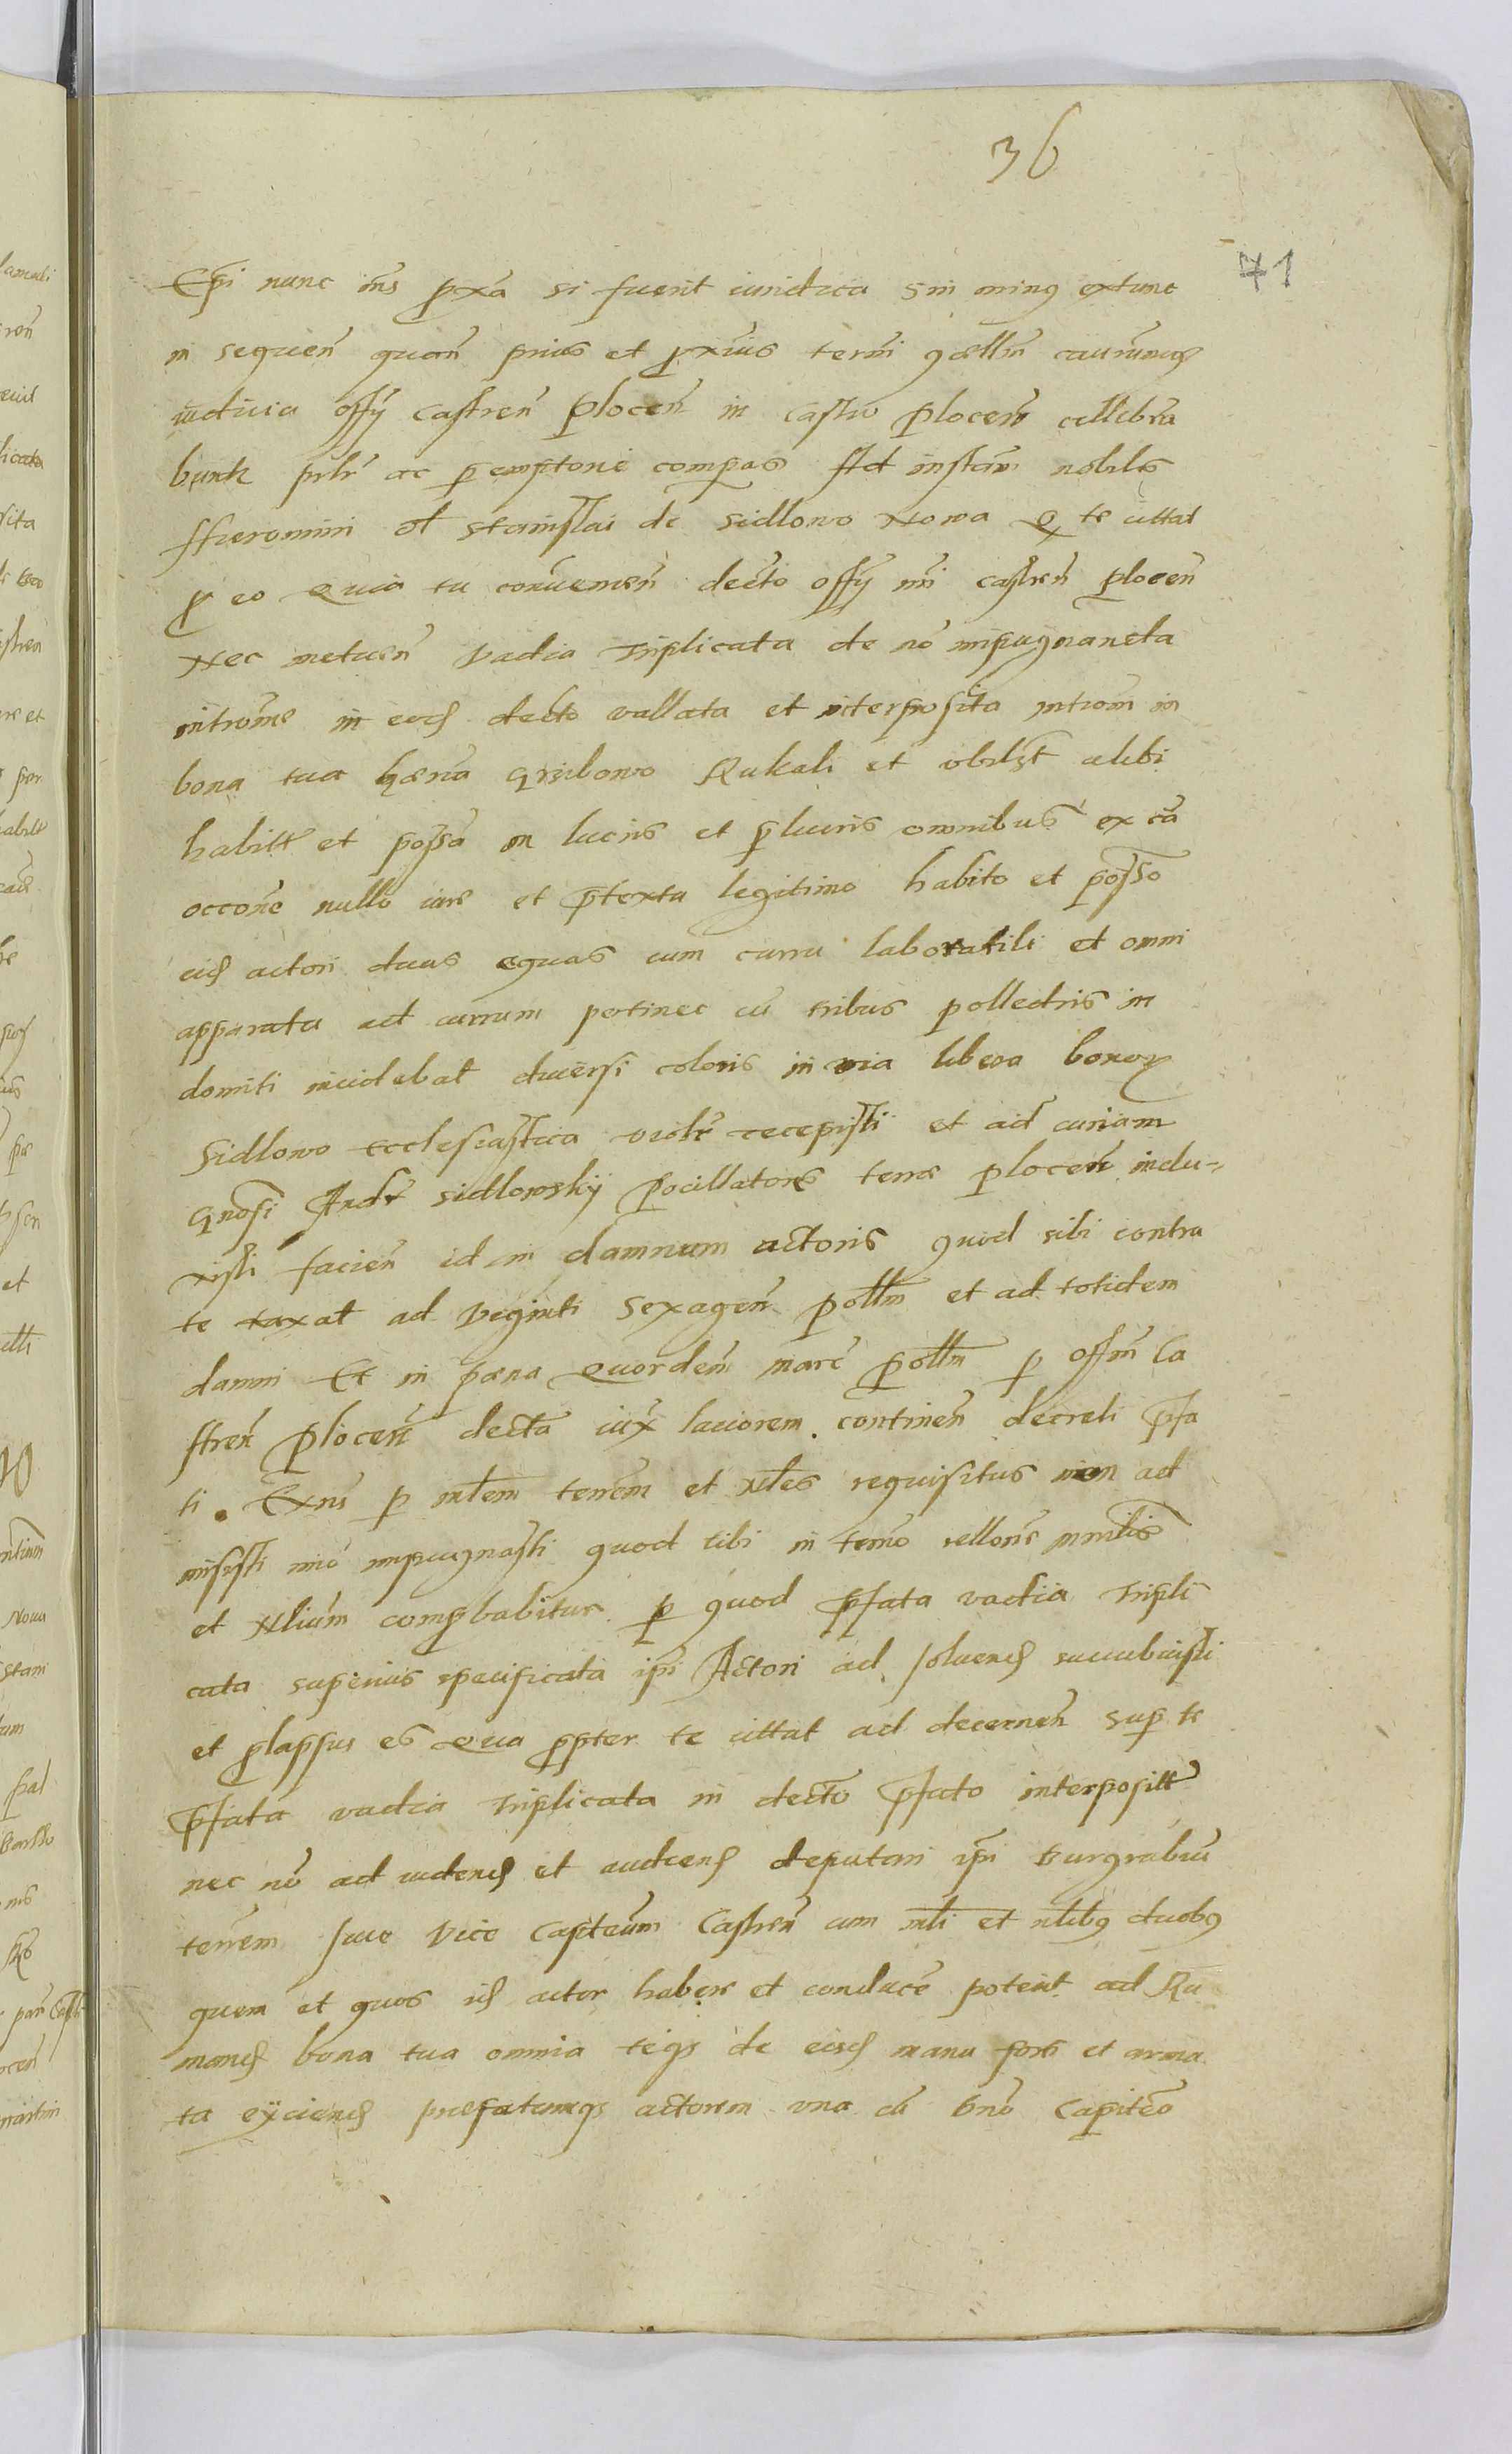 36
71
Epi nunc ins pxa si fuerit iuridica sin minus extunc
in sequen quan prius et pxius termi gcellm caurumque
iudicia offy Castren plocen in castro plocen cellebra
bunt psrlr ac peremptorie compas Ad instan nobilis
Hieronimi ol Stanislai de Sidlowo Nowa q te cittat
p eo Quia tu convenien decto offy mi castren plocen
Nec metuen vadia triplicata de no impugnanda
introme in eod decto vallata et interposita introm in
bona tua haerria Grzibowo Rukali et ubilbt alibi
habitt et possa in lucris et pluciis omnibus ex ca
occone nullo iure et ptextu legitimo habito et posso
eid actori duas equas cum curru laboratili et omni
apparatu ad currum pertinec cu tribus polledris in
domiti incidebat diversi coloris in via libera bonor
Sidlowo Ecclesiastica violr recepisti et ad curiam
Gnosi Andr Sidlowskij pocillatoris terrae plocen indu-
xisti facien id in damnum actoris quod sibi contra
te taxat ad viginti sexagen pollm et ad totidem
damni Et in paena Quordem marc pollm p offm Ca
stren plocen decta iux laciorem continen decreti pfa
ti. Exns p mlem terrem et Nles requisitus non ad
misisti imo impugnasti quod tibi in termo rellone mnlis
et Nlium compbabitur p quod pfata vadia tripli
cata superius specificata ipi Actori ad solvend succubuisti
et plapsus es Qua ppter te cittat ad decernen sup te
pfata vadia triplicata in decto pfato interpositt
nec no ad vidend et audiend deputari ipi Burgrabiu
terrem sive Vice Capteum Castren cum mli et nlibus duobus
quem et quos id actor habere et conducе poterit ad Ru
mand bona tua omnia teque de eisd manu forti et arma
ta eyciend praefatumque actorem una cu Gno Capiteo